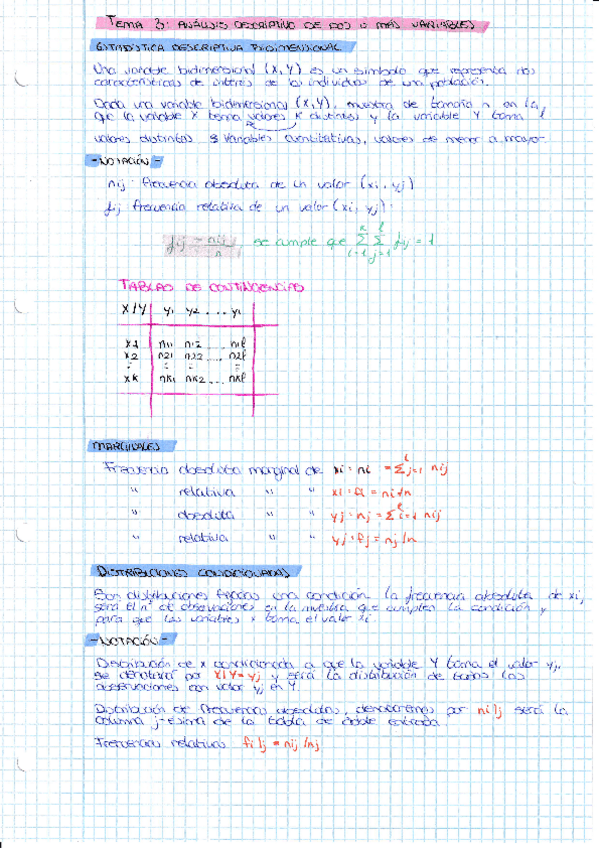 TEMA 3: ANÁLISIS DESCRIPTIVO DE DOS O MÁS VARIABLES
ESTADÍSTICA DESCRIPTIVA BIDIMENSIONAL
Una variable bidimensional (X,Y) es un símbolo que representa dos
características de interés de los individuos de una población.
Dada una variable bidimensional (X,Y), muestra de tamaño n en la
que la variable X toma valores K distintos y la variable Y toma l
valores distintos variables cuantitativas, valores de menor a mayor.
- NOTACIÓN -
nij: frecuencia absoluta de un valor (xi, yj)
fij frecuencia relativa de un valor (xi, yj):
fij = nij/n se cumple que Σ(i=1, k) Σ(j=1, l) fij = 1
TABLAS DE CONTINGENCIAS
X/Y y1 y2 ... yl
x1 n11 n12 ... n1l
x2 n21 n22 ... n2l
xk nk1 nk2 ... nkl
MARGINALES
Frecuencia absoluta marginal de xi: ni = Σ(j=1, l) nij
" relativa " " xi: fi = ni/n
" absoluta " " yj: nj = Σ i=1 nij
" relativa " " yj: fj = nj/n
DISTRIBUCIONES CONDICIONADAS
Son distribuciones fijadas una condición la frecuencia absoluta de xi,
será el nº de observaciones en la muestra que cumplen la condición y
para que las variables x toma el valor xi.
- NOTACIÓN -
Distribución de x condicionada a que la variable Y toma el valor yj,
se denotará por X/Y=yj y será la distribución de las
observaciones con valor yj en Y.
Distribución de frecuencias absolutas, denotaremos por ni/j será la
columna j-ésima de la tabla de doble entrada.
Frecuencias relativas fi/j = nij/nj